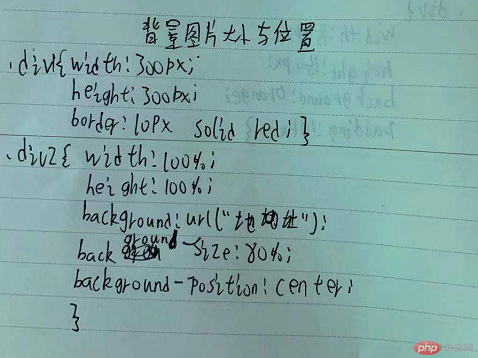 背景图片大小与位置
.div1{width:300px;
height:300px;
border:10px solid red;}
.div2{ width:100%;
height:100%;
background:url("地址");
background-size:80%;
background-position:center;
}
php